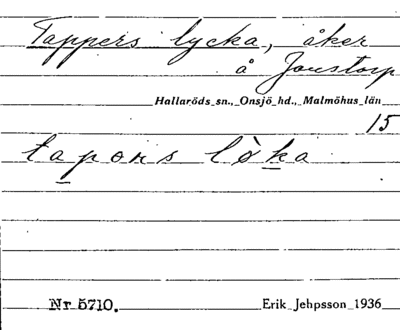 Tappers lycka, åker
å Jonstorp
Hallaröds sn., Onsjö hd., Malmöhus län
15
tapors lỳka
Nr 5710. Erik Jehpsson 1936